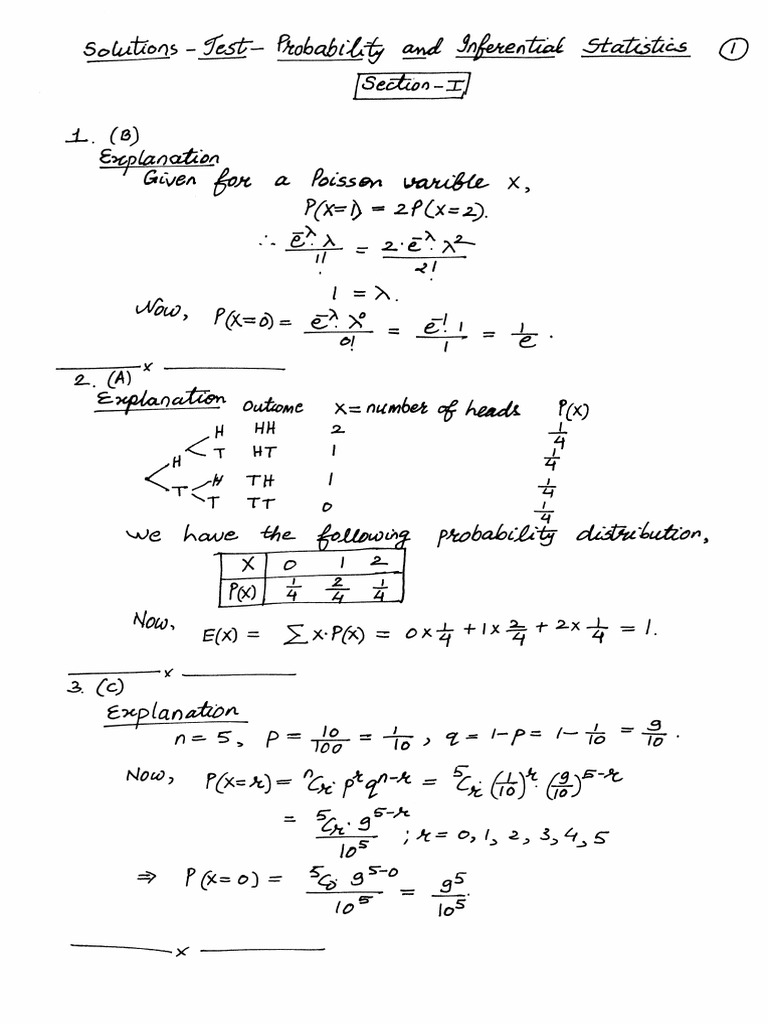 Solutions - Test - Probability and Inferential Statistics ①
Section-I
1. (B)
Explanation
Given for a Poisson varible X,
P(X=1) = 2P(X=2).
∴ e^-λ·λ/1! = 2·e^-λ·λ²/2!
1 = λ.
Now, P(X=0) = e^-λ·λ⁰/0! = e^-1·1/1 = 1/e.
x
2. (A)
Explanation Outcome X= number of heads P(X)
H HH 2 1/4
H T HT 1 1/4
T H TH 1 1/4
T TT 0 1/4
we have the following probability distribution,
X 0 1 2
P(X) 1/4 2/4 1/4
Now, E(X) = ΣX·P(X) = 0×1/4 + 1×2/4 + 2×1/4 = 1.
x
3. (C)
Explanation
n = 5, p = 10/100 = 1/10, q = 1-p = 1- 1/10 = 9/10.
Now, P(X=r) = ⁿCr·p^r q^n-r = ⁵Cr(1/10)^r·(9/10)^5-r
= ⁵Cr·9^5-r/10⁵ ; r = 0, 1, 2, 3, 4, 5
⇒ P(X=0) = ⁵C₀·9^5-0/10⁵ = 9⁵/10⁵.
x